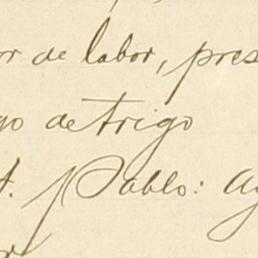 or de labor, pres
go de trigo
t. Pablo: Ag